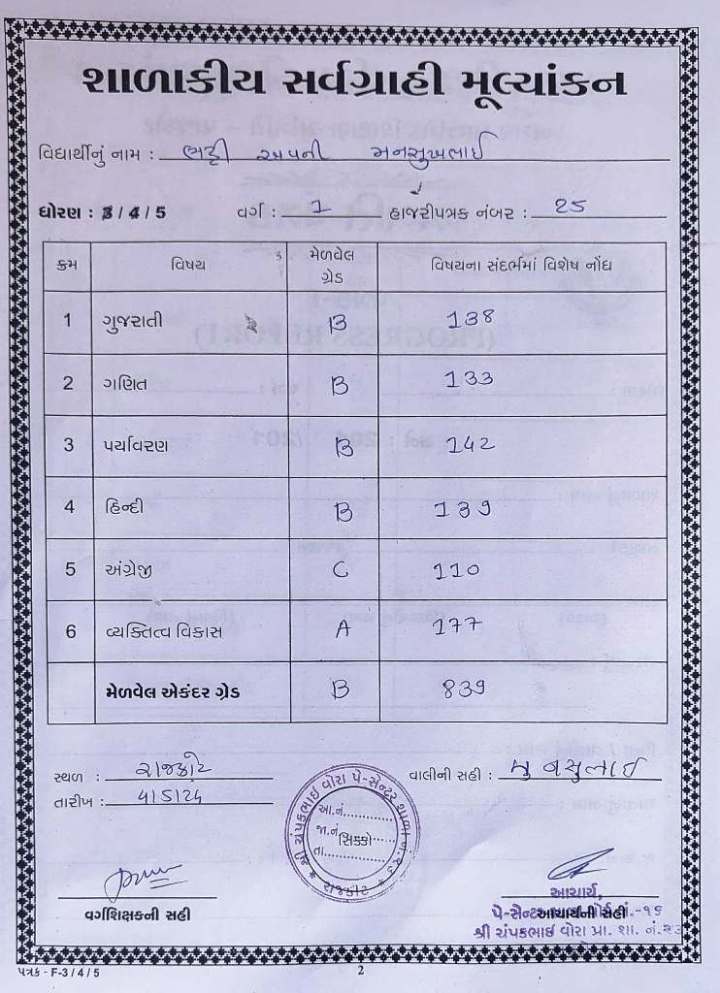 શાળાકીય સર્વગ્રાહી મૂલ્યાંકન
વિદ્યાર્થીનું નામ : ભટ્ટી અવની મનસુખભાઈ
ધોરણ : 3 / 4 / 5 વર્ગ : 1 હાજરીપત્રક નંબર : 25
ક્રમ વિષય મેળવેલ ગ્રેડ વિષયના સંદર્ભમાં વિશેષ નોંધ
1 ગુજરાતી B 138
2 ગણિત B 133
3 પર્યાવરણ B 142
4 હિન્દી B 139
5 અંગ્રેજી C 110
6 વ્યક્તિત્વ વિકાસ A 177
મેળવેલ એકંદર ગ્રેડ B 839
સ્થળ : રાજકોટ વાલીની સહી :
તારીખ : 4/5/24
શ્રી ચંપકભાઈ વોરા પે-સેન્ટર શાળા નં.
આ.નં.
જા.નં. સિક્કો
તા.
રાજકોટ
આચાર્ય,
વર્ગશિક્ષકની સહી આચાર્યની સહી
પે-સેન્ટ -૧૬
શ્રી ચંપકભાઈ વોરા પ્રા. શા. નં.
પત્રક - F-3 / 4 / 5 2